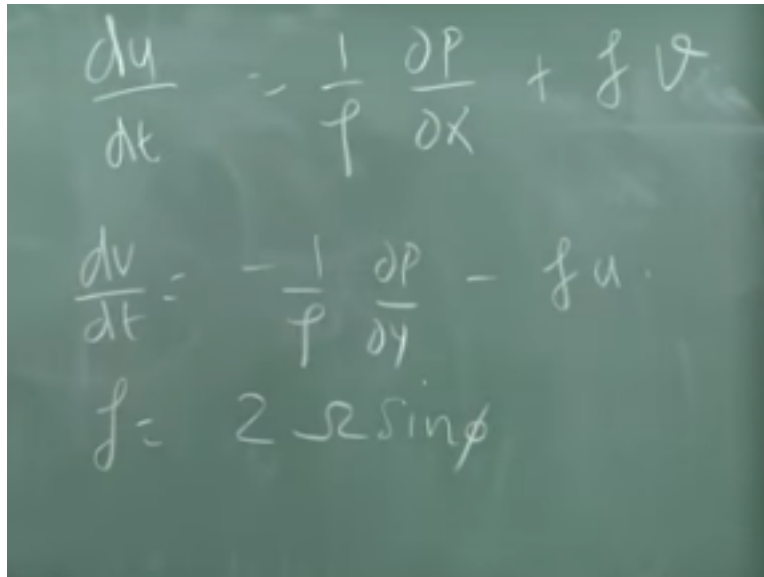 du/dt = 1/ρ ∂P/∂x + fv
dv/dt = - 1/ρ ∂P/∂y - fu.
f = 2 Ω sinϕ